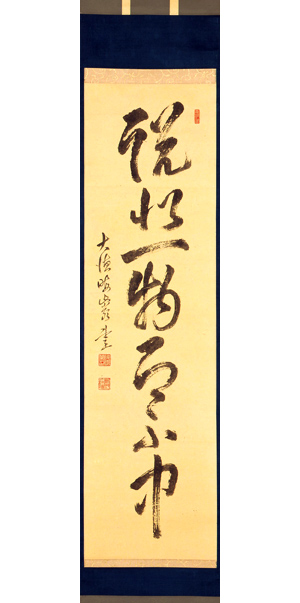 説似一物即不中
大徳
書